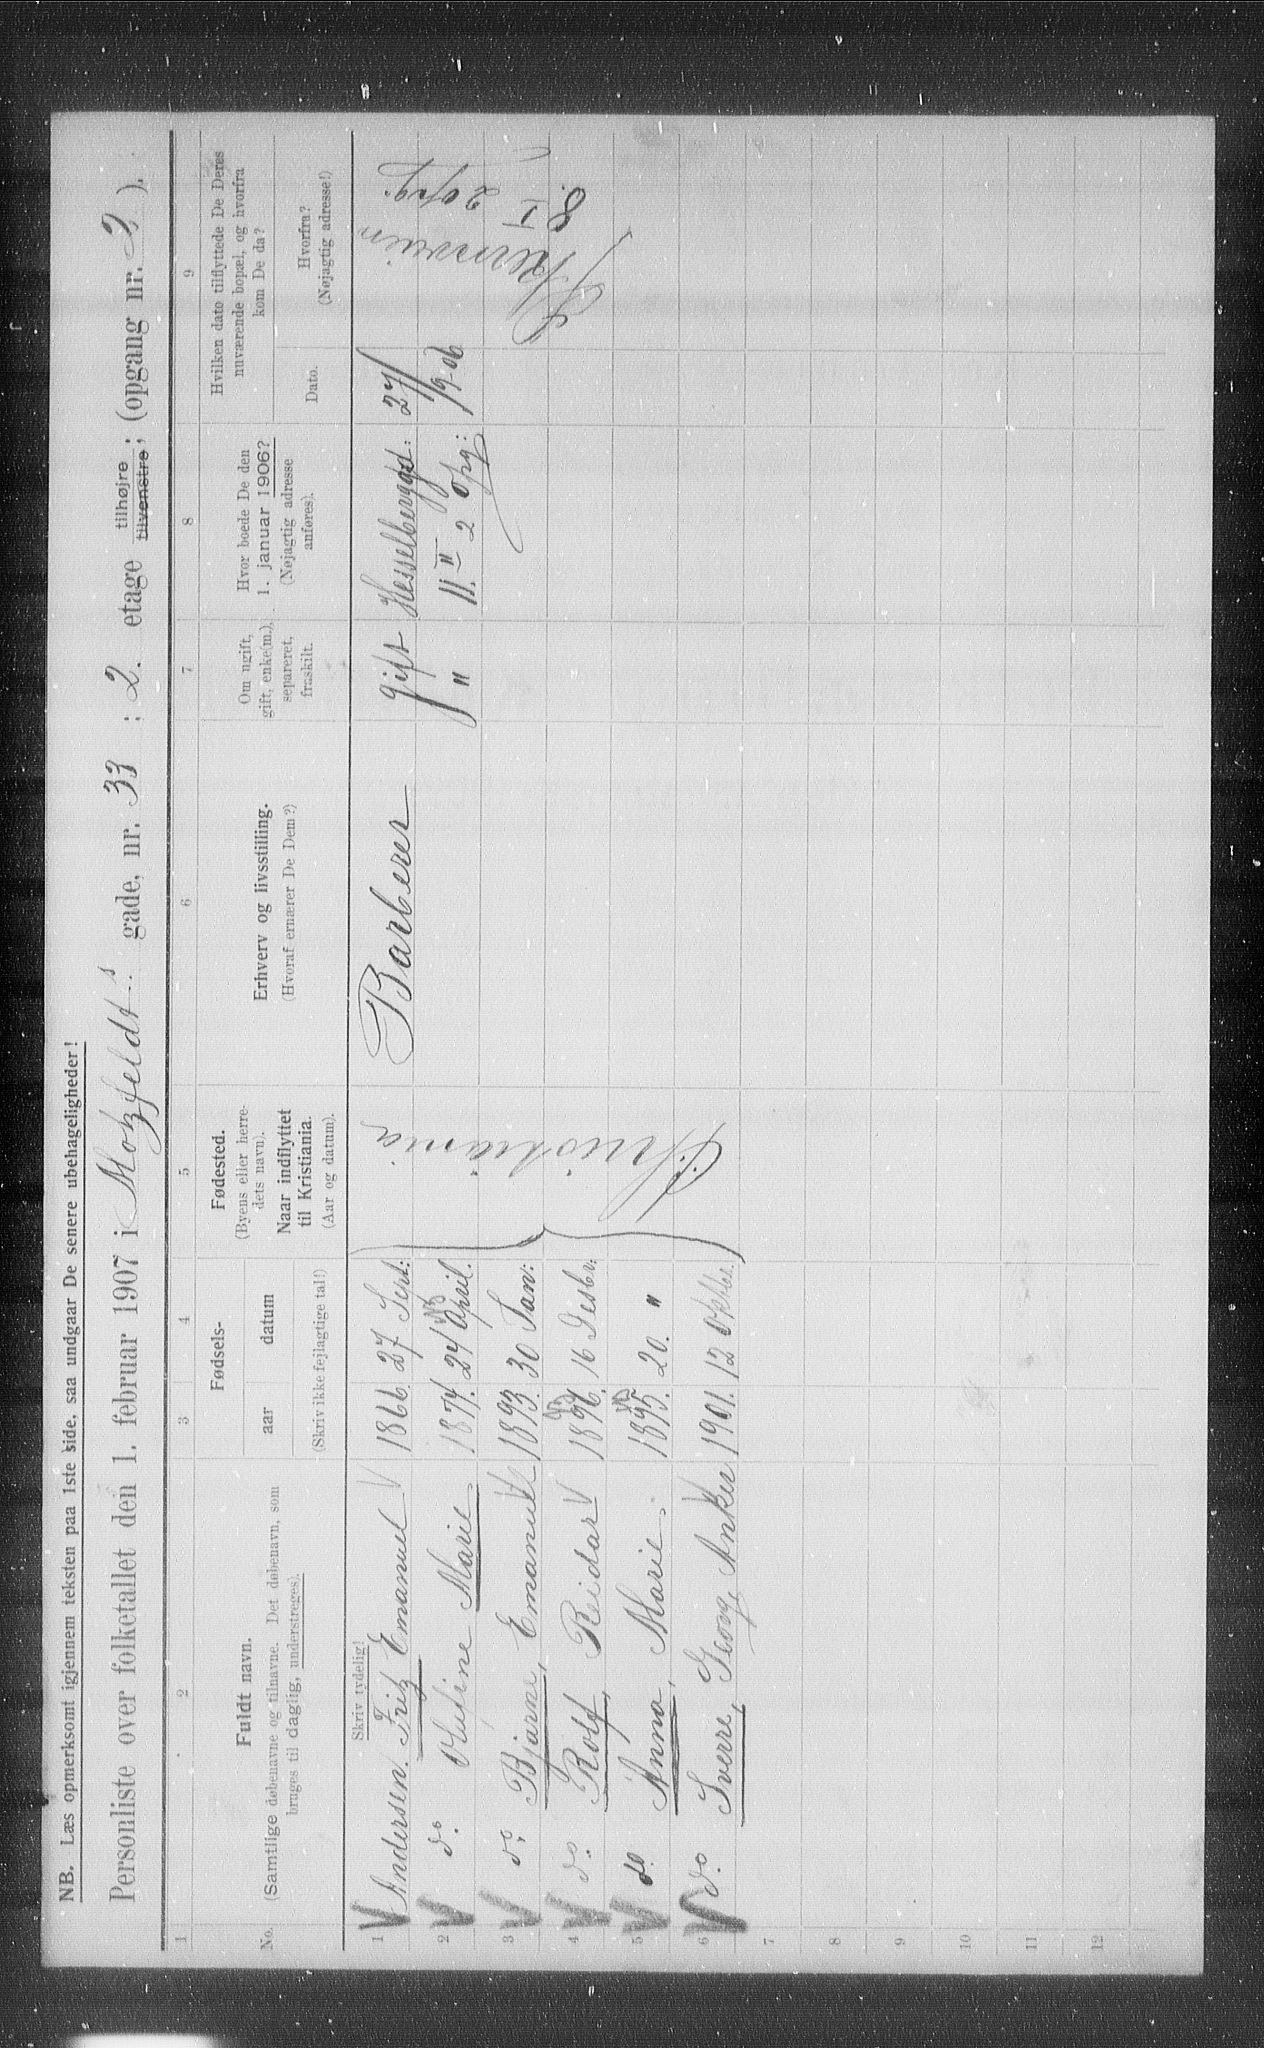 NB. Læs opmerksomt igjennem teksten paa 1ste side, saa undgaar De senere ubehageligheder!
Personliste over folketallet den 1. februar 1907 i Motzfeldt s gade, nr. 33 ; 2. etage tilhøjre tilvenstre; (opgang nr. 2 ).
1 2 3 4 5 6 7 8 9
No.
Fuldt navn.
(Samtlige døbenavne og tilnavne. Det døbenavn, som
bruges til daglig, understreges).
Fødsels-
aar datum
(Skriv ikke fejlagtige tal!)
Fødested.
(Byens eller herre-
dets navn).
Naar indflyttet
til Kristiania.
(Aar og datum).
Erhverv og livsstilling.
(Hvoraf ernærer De Dem?)
Om ugift,
gift, enke(m.),
separeret,
fraskilt.
Hvor boede De den
1. januar 1906?
(Nøjagtig adresse
anføres).
Hvilken dato tilflyttede De Deres
nuværende bopæl, og hvorfra
kom De da?
Dato.
Hvorfra?
(Nøjagtig adresse!)
Skriv tydelig!
1 Andersen. Fritz Emanuel 1866. 27 Sept: Kristiania Barberer gift Hesselberggd: 27/9-06
2 do. Olufine Marie 1874. 24 April. " 11. II 2 opg:
2 opg.
8. I
3 do. Bjarne, Emanuel 1893. 30 Jan:
4 do. Rolf, Reidar 1896. 16 Desbr:
5 do. Anna, Marie. 1895. 20. "
6 do. Sverre, Georg Anker 1901. 12 Oktbr.
7
8
9
10
11
12